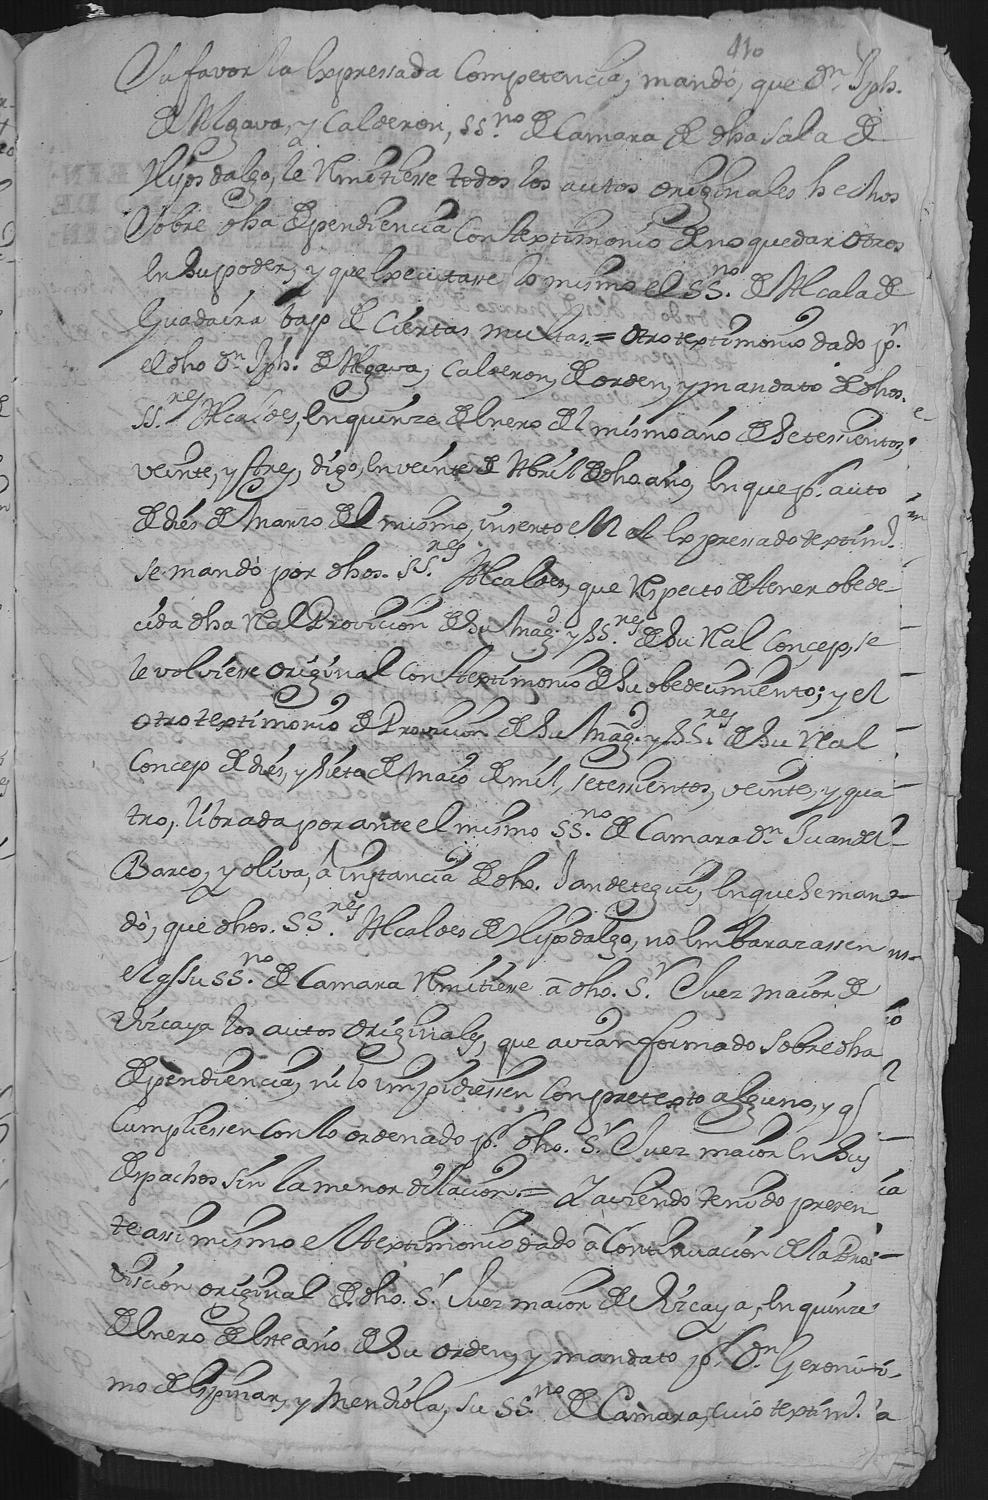 410
Su favor la expressada Competencia, mandó, que Dn. Jph.
de Algava, y Calderon, SSno. de Camara de dha Sala de
Hijosdalgo, le remitiesse todos los autos originales hechos
Sobre dha dependiencia Con textimonio de no quedar otros
en Su poder, y que executase lo mismo el SSno. de Alcala de
Guadaira bajo de Ciertas multas = otro textimonio dado pr.
el dho Dn. Jph. de Algava, Calderon, de orden, y mandato de dhos.
SSres. Alcaldes, en quinze de Enero del mismo año de Setesientos,
veinte, y tres, digo, en veinte de Abril de dho año, en que pr. auto
de dies de Marzo del mismo, inserto en el expressado textim.
se mandó por dhos. SSres. Alcaldes, que respecto de tener obede-
cida dha Real Provicion de Su Magd. y SSres. de Su Real Concep, se
le volviesse original con textimonio de Su obedecimiento; y el
otro textimonio de Provicion de Su Magd. y SSres. de Su Real
Concep de dies, y Siete de Maio de mil, setesientos, veinte, y qua
tro, librada por ante el mismo SSno. de Camara Dn. Juan del
Barco, y oliva, á instancia de dho. Jandetegui, en que Se man-
dó, que dhos. SSres. Alcaldes de Hijosdalgo, no embarazassen
el q Su SSno. de Camara remitiese â dho. Sr. Juez maior de
Vizcaya los autos originales, que avian formado Sobre dha
dependiencia, ni lo impidiessen con pretexto alguno, y q
Cumpliessen con lo ordenado pr. dho. Sr. Juez maior en Sus
despachos sin la menor dilacion = Y aviendo tenido presen
te assimismo el textimonio dado â Continuacion de la Pro-
vission original de dho. Sr. Juez maior de Vizcaya, en quinze
de Enero de este año de Su orden, y mandato pr. Dn. Geroni-
mo de Espinar, y Mendiola, su SSno. de Camara, cuio textim. a